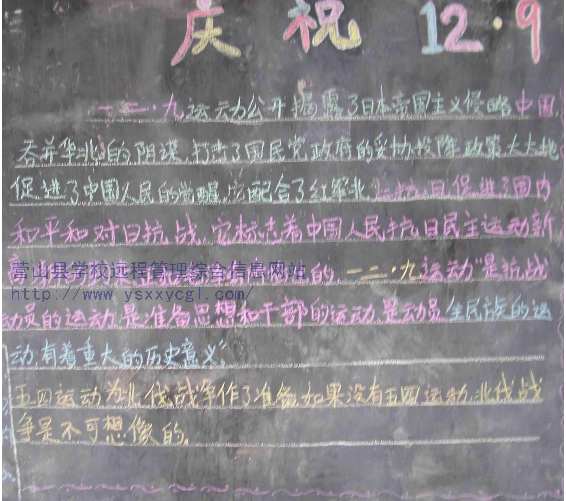 庆祝 12·9
一二·九运动公开揭露了日本帝国主义侵略中国,
吞并华北的阴谋,打击了国民党政府的妥协投降政策,大大地
促进了中国人民的觉醒,它配合了红军北上抗日,促进了国内
和平和对日抗战,它标志着中国人民抗日民主运动新
营山县学校远程管理综合信息网站的,一二·九运动"是抗战
http://www.ysxxycgl.com/
动员的运动,是准备思想和干部的运动,是动员全民族的运
动,有着重大的历史意义;
五四运动为北伐战争作了准备,如果没有五四运动,北伐战
争是不可想像的.